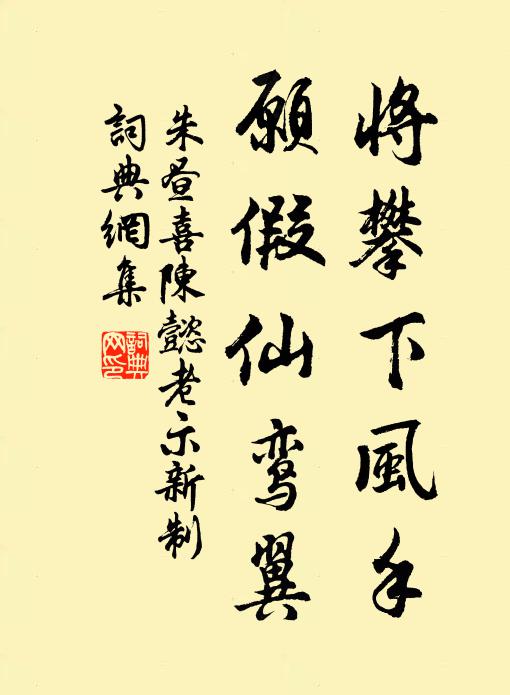 将攀下風手
願假仙鸾翼
朱昼喜陳懿老示新制
詞典網集
詞典網印